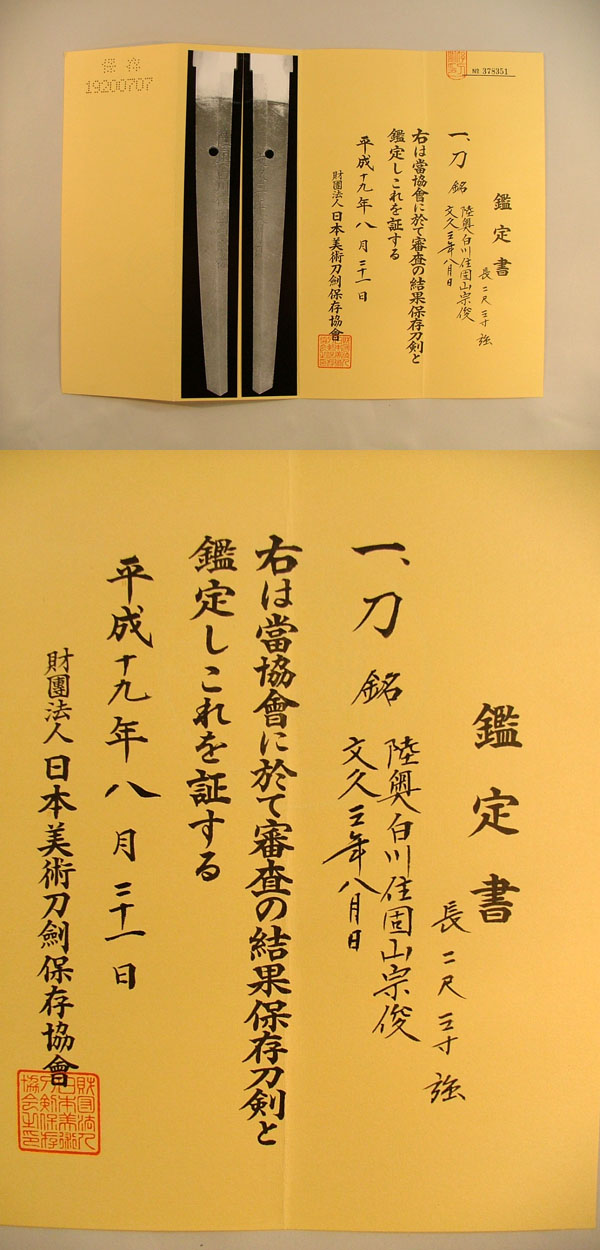 保存
19200707
№ 378351
鑑定書
長二尺三寸強
一、刀 銘 陸奥白川住固山宗俊
文久三年八月日
右は當協會に於て審査の結果保存刀剣と
鑑定しこれを証する
平成十九年八月三十一日
財團法人日本美術刀劍保存協會
財団法人
日本美術
刀剣保存
協会之印
鑑定書
長二尺三寸強
一、刀 銘 陸奥白川住固山宗俊
文久三年八月日
右は當協會に於て審査の結果保存刀剣と
鑑定しこれを証する
平成十九年八月三十一日
財團法人日本美術刀劍保存協會
財団法人
日本美術
刀剣保存
協会之印